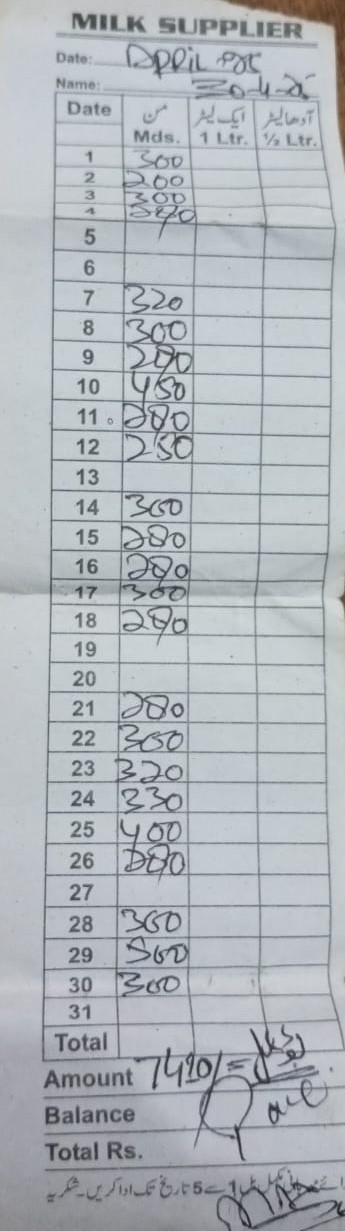 MILK SUPPLIER
Date: April
Name: 30-4-25
Date من ایک لیٹر آدھا لیٹر
Mds. 1 Ltr. ½ Ltr.
1 300
2 200
3 300
4
5
6
7 320
8 300
9 280
10 450
11 280
12 250
13
14 300
15 280
16 280
17 300
18 280
19
20
21 280
22 300
23 320
24 330
25 400
26 280
27
28 300
29 500
30 300
31
Total
Amount 7490/=
Balance
Total Rs.
1 سے 5 تاریخ تک ادا کریں۔ شکریہ